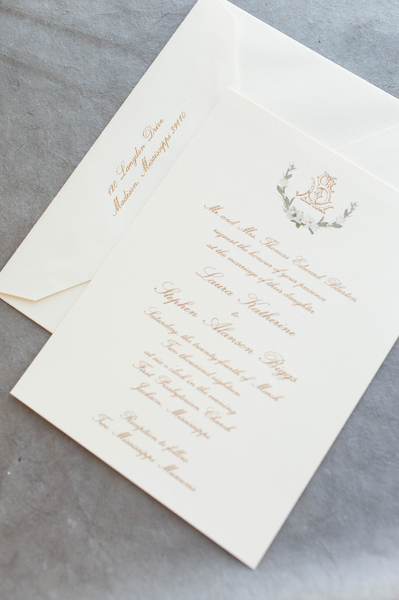 120 Langdon Drive
Madison, Mississippi 39110
Mr. and Mrs. Thomas Edward
request the honour of your presence
at the marriage of their daughter
Laura Katherine
to
Stephen Alanson Biggs
Saturday, the twenty-fourth of March
Two thousand eighteen
at six o'clock in the evening
First Presbyterian Church
Jackson, Mississippi
Reception to follow
Two Mississippi Museums